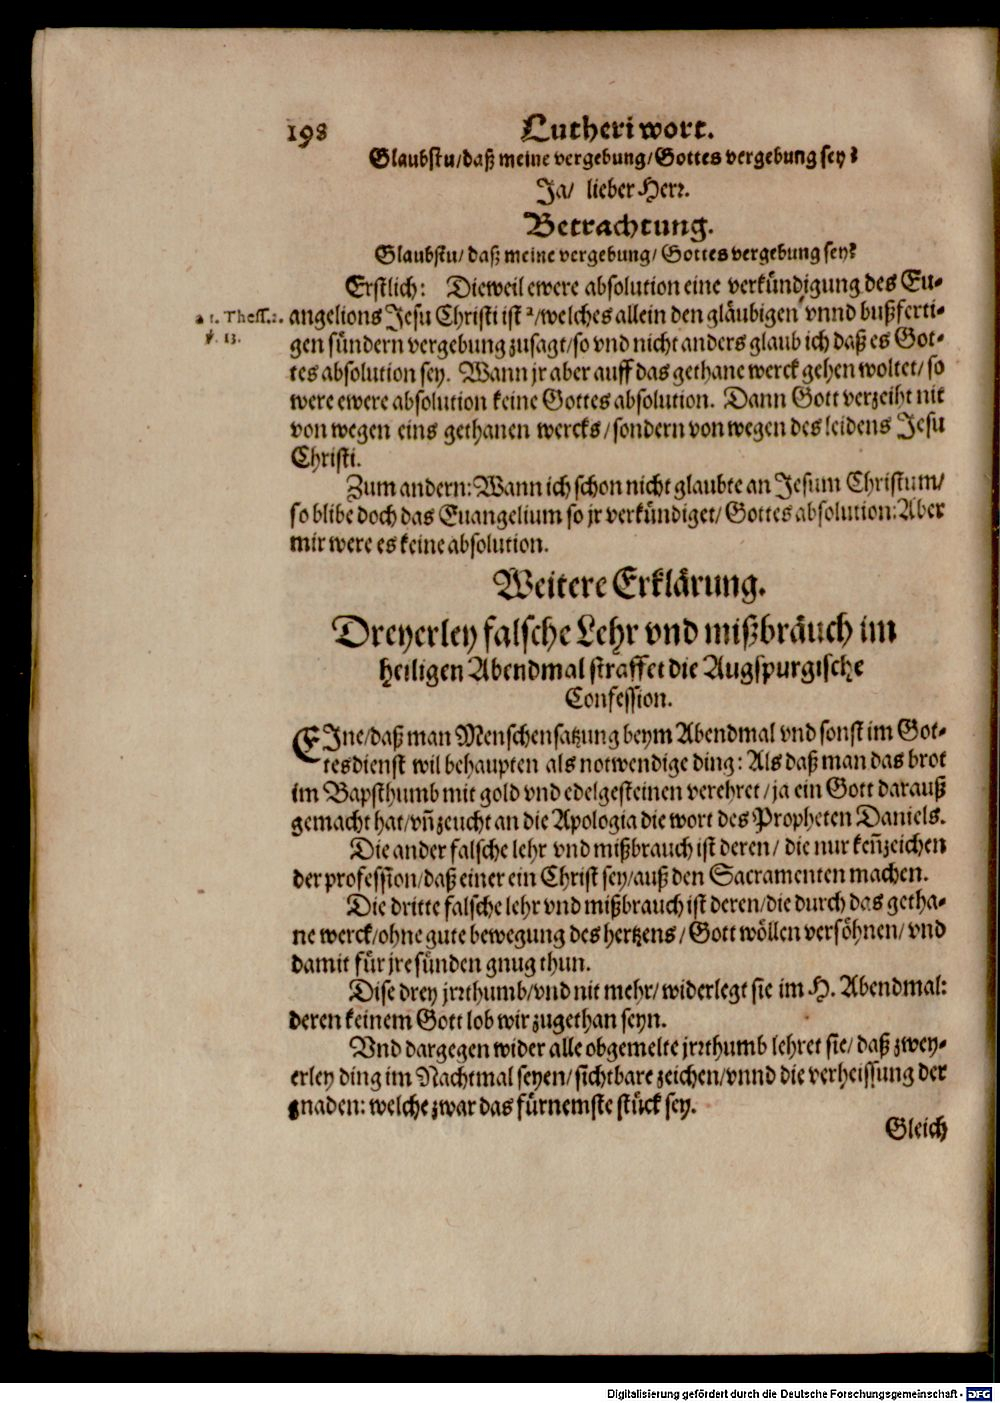 198 Lutheri wort.
Glaubstu/daß meine vergebung/Gottes vergebung sey?
Ja/ lieber Herr.
Betrachtung.
Glaubstu/ daß meine vergebung/ Gottes vergebung sey?
Erstlich: Dieweil ewere absolution eine verkündigung des Eu-
a 1. Thess. 2. angelions Jesu Christi ist a/welches allein den gläubigen vnnd bußferti-
v. 13. gen sündern vergebung zusagt/so vnd nicht anders glaub ich daß es Got-
tes absolution sey. Wann jr aber auff das gethane werck gehen woltet/ so
were ewere absolution keine Gottes absolution. Dann Gott verzeiht nit
von wegen eins gethanen wercks/sondern von wegen des leidens Jesu
Christi.
Zum andern: Wann ich schon nicht glaubte an Jesum Christum/
so blibe doch das Euangelium so jr verkündiget/ Gottes absolution: Aber
mir were es keine absolution.
Weitere Erklärung.
Dreyerley falsche Lehr vnd mißbräuch im
heiligen Abendmal straffet die Augspurgische
Confession.
EJne/daß man Menschensatzung beym Abendmal vnd sonst im Got-
tesdienst wil behaupten als notwendige ding: Als daß man das brot
im Bapsthumb mit gold vnd edelgesteinen verehret/ja ein Gott darauß
gemacht hat/vn̄ zeucht an die Apologia die wort des Propheten Daniels.
Die ander falsche lehr vnd mißbrauch ist deren/ die nur ken̄zeichen
der profession/daß einer ein Christ sey/auß den Sacramenten machen.
Die dritte falsche lehr vnd mißbrauch ist deren/die durch das getha-
ne werck/ohne gute bewegung des hertzens/ Gott wöllen versöhnen/ vnd
damit für jre sünden gnug thun.
Dise drey jrrthumb/vnd nit mehr/ widerlegt sie im H. Abendmal:
deren keinem Gott lob wir zugethan seyn.
Vnd dargegen wider alle obgemelte jrrthumb lehret sie/ daß zwey-
erley ding im Nachtmal seyen/ sichtbare zeichen/vnnd die verheissung der
gnaden: welche zwar das fürnemste stück sey.
Gleich
Digitalisierung gefördert durch die Deutsche Forschungsgemeinschaft - DFG